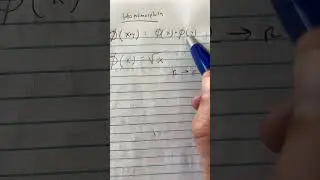 Homomorphism
ϕ(xy) = ϕ(x)·ϕ(y)
ϕ(x) = √x